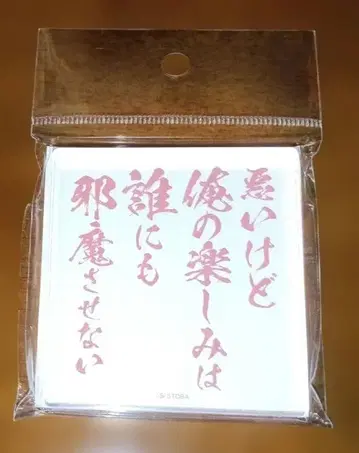 悪いけど
俺の楽しみは
誰にも
邪魔させない